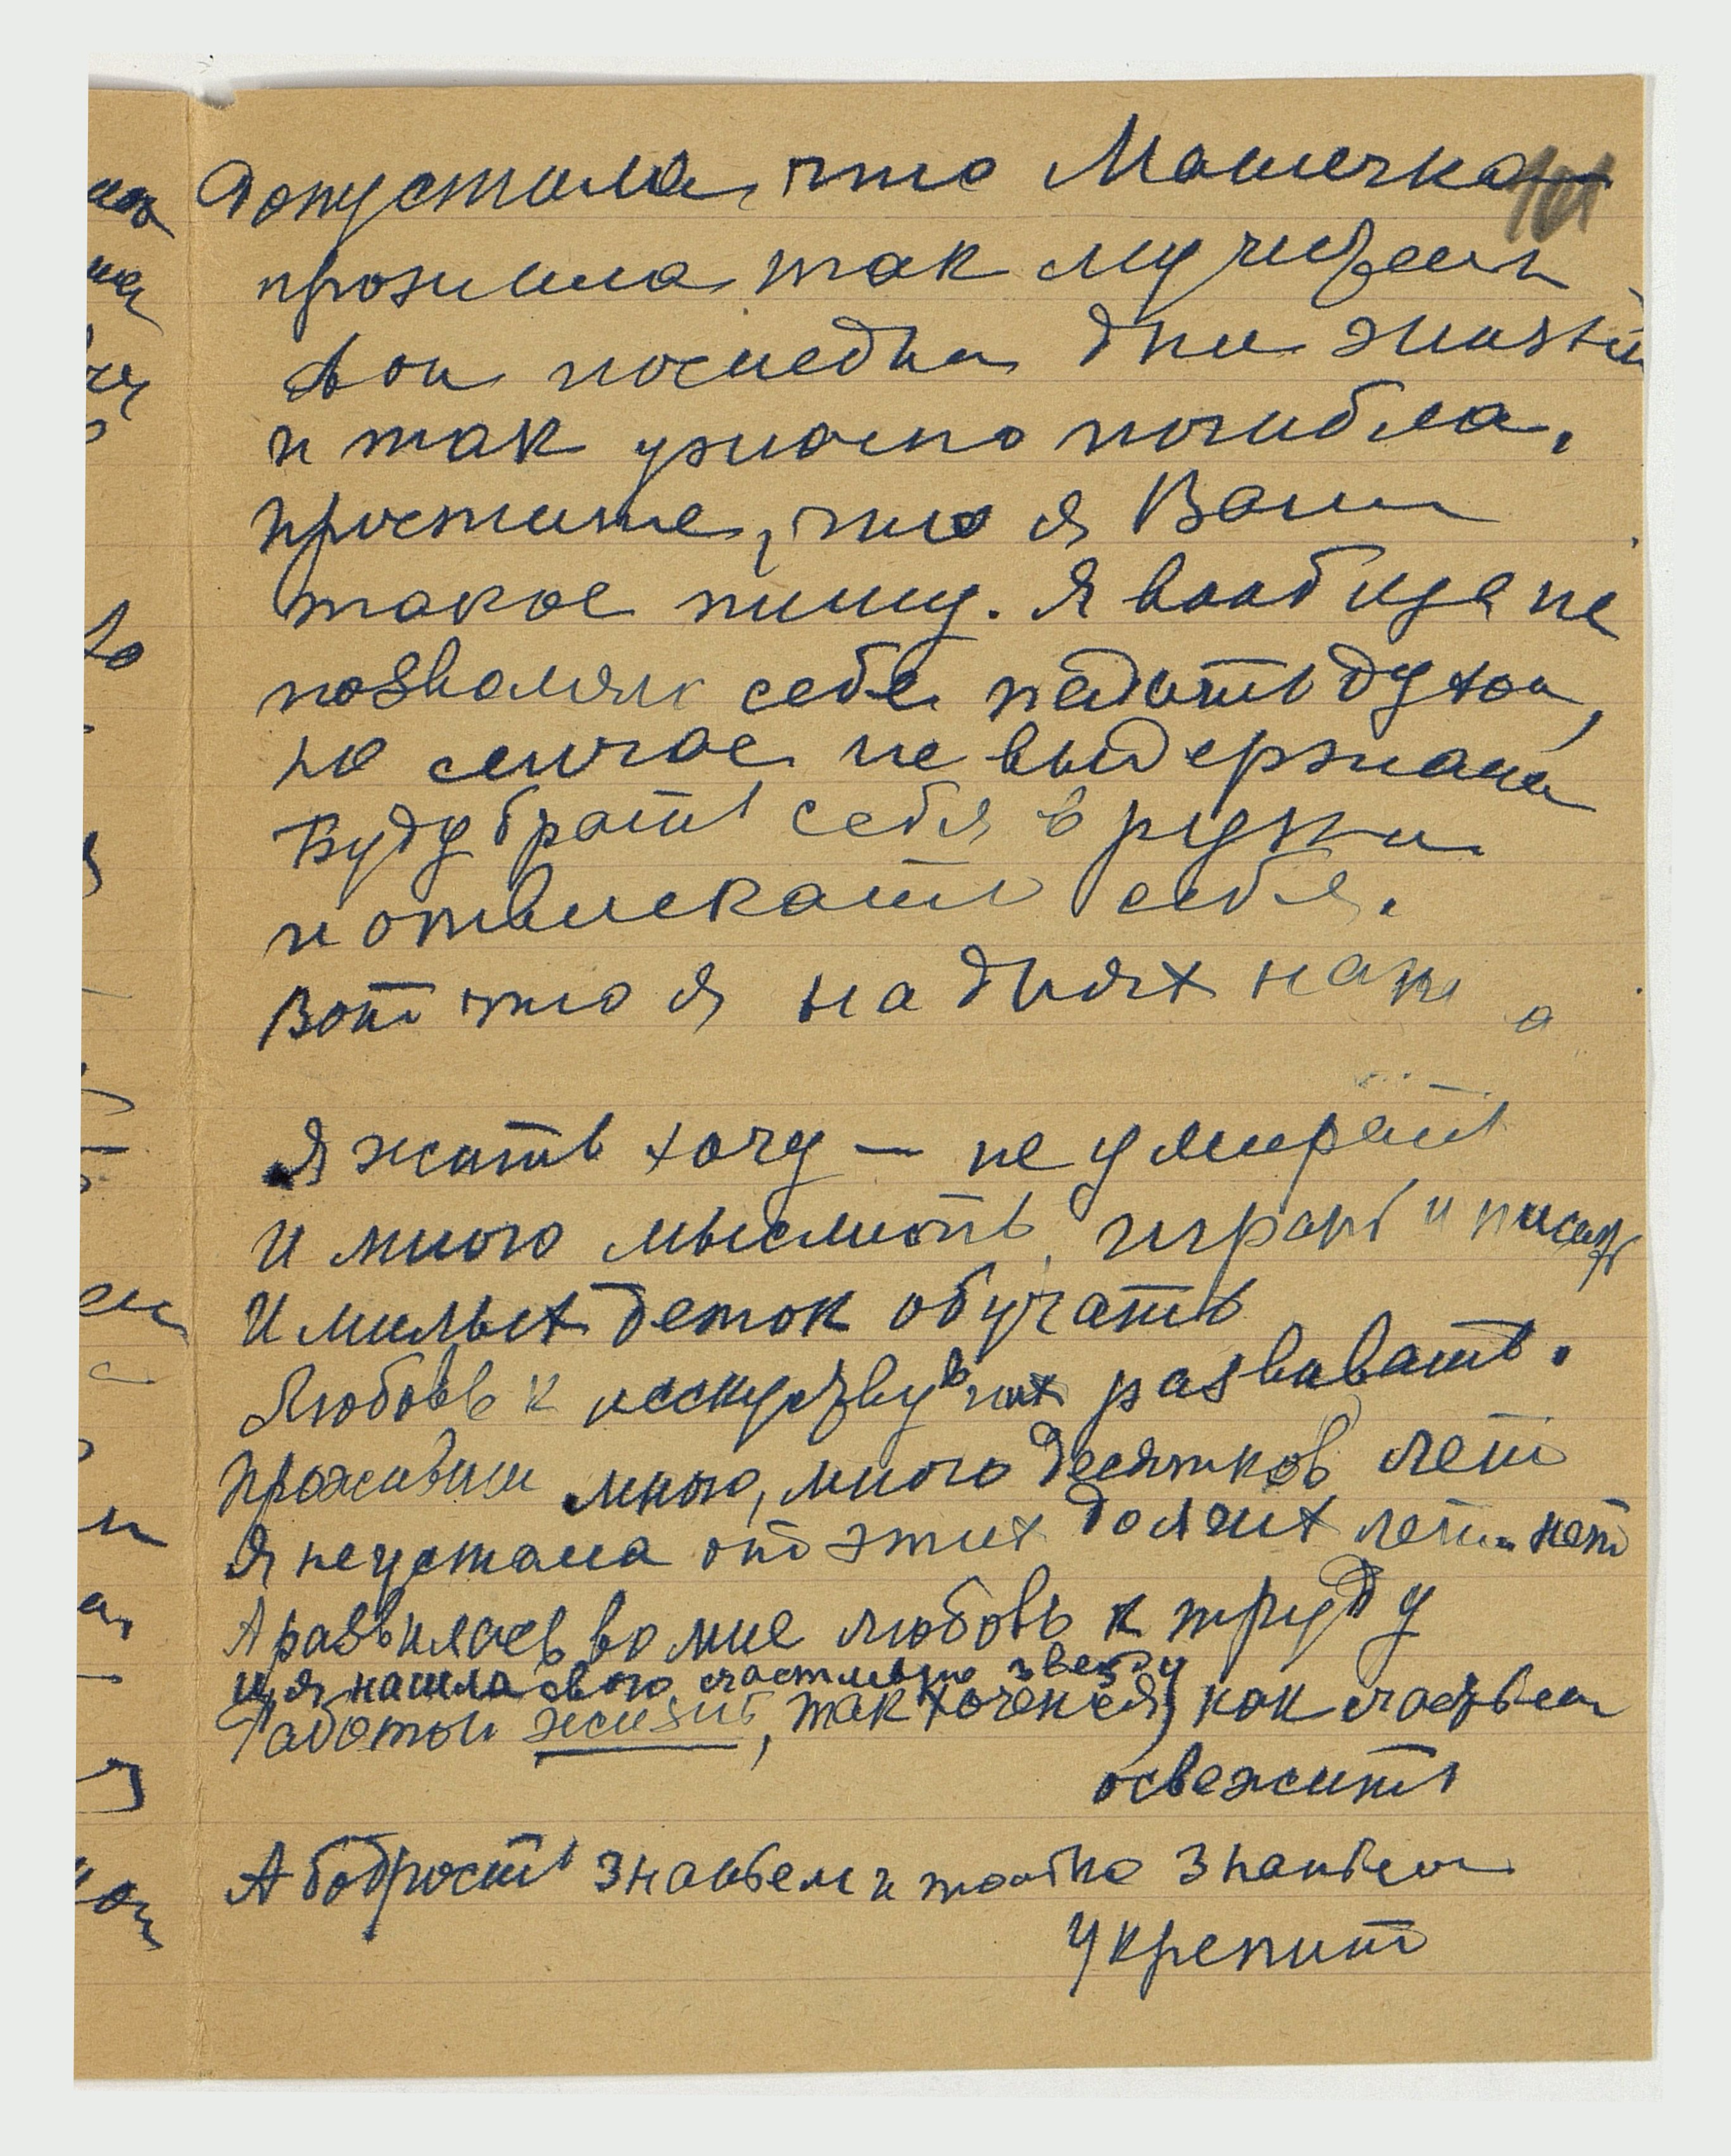 допустила, что Машечка
прожила так мучительн
свои последн дни жизни
и так ужасно погибла.
Простите, что я Вам
такое пишу. Я вообще не
позволяю себе падать духом,
но сейчас не выдержала
Буду брать себя в руки
и отвлекать себя.
Вот что я на днях напи а
Я жить хочу — не умирать
И много мыслить, играть и писать
И милых деток обучать
Любовь к исскуству в них развивать.
Проживши много, много десятков лет
Я не устала от этих долгих лет.. нет
А развилась во мне любовь к труду
и я нашла свою счастливую звезду
Работой жизнь, так хочется, как счастьем
освежить
А бодрость знаньем и только знаньем
Укрепит